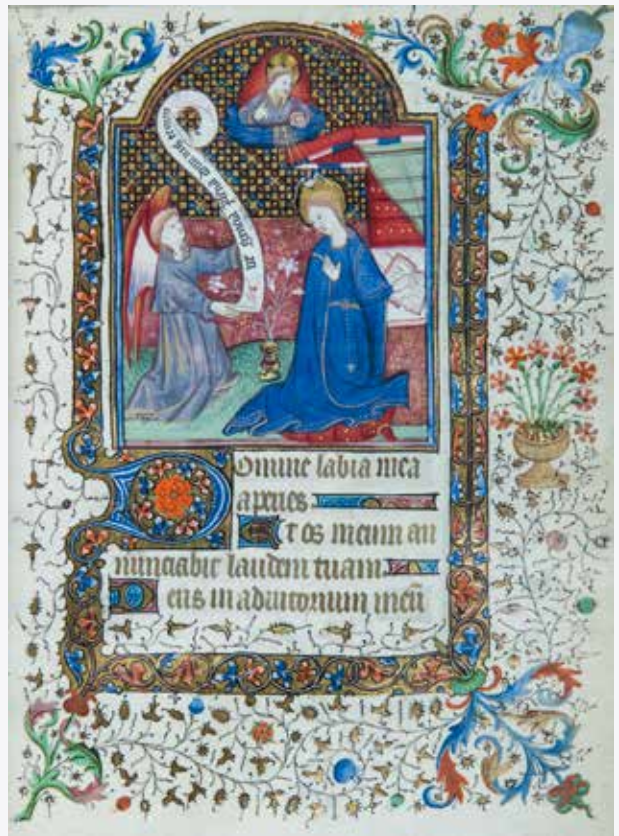 gracia plena
Domine labia mea
aperies
Et os meum an
nunciabit laudem tuam
Deus in adiutorium meū